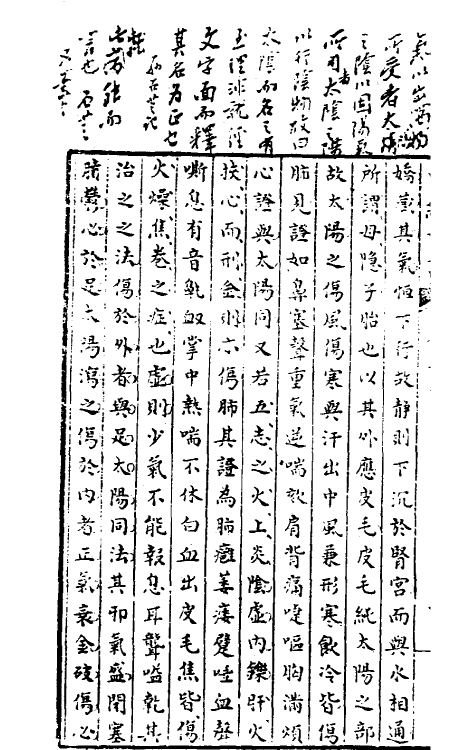 氣以出萬物
所受者大
之陰以因陽
所用太陰之
以行陰物故曰
太陰而名之
玉 從非就經
文字面而釋
其名為正也
嬌藏其氣恒下行故靜則下沉於腎宮而與水相通
所謂母隱子胎也以其外應皮毛皮毛統太陽之部
故太陽之傷風傷寒與汗出中風兼形寒飲冷皆傷
肺見證如鼻塞聲重氣逆喘欬肩背痛嚏嘔胸滿煩
心證與太陽同又若五志之火上炎陰虛內鑠肝火
挾心而刑金則亦傷肺其證為肺癰萎痿躄唾血聲
嘶息有音鼽衄掌中熱喘不休白血出皮毛焦皆傷
火燥焦卷之症也虛則少氣不能報息耳聾嗌乾其
治之之法傷於外者與足太陽同法其邪氣盛閉塞
肺鬱心於足太陽瀉之傷於內者正氣衰金破傷心